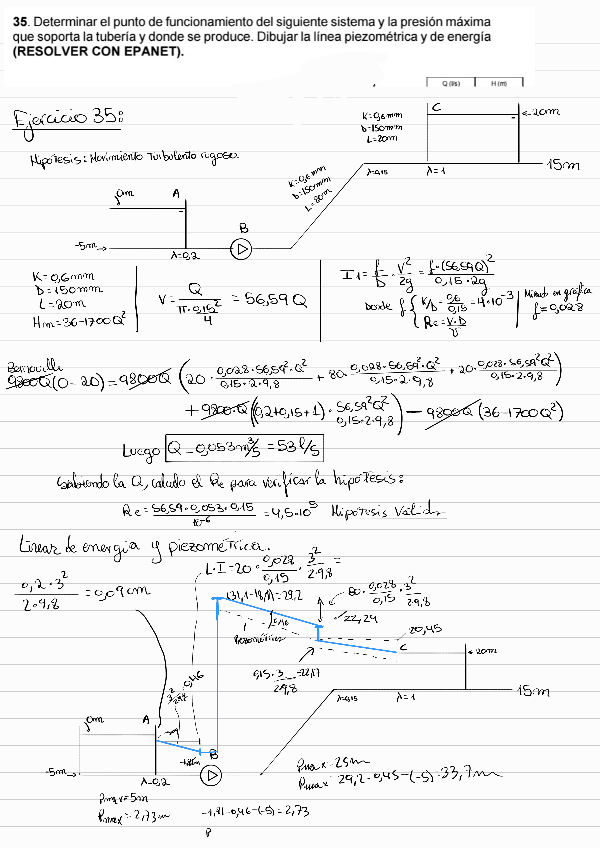 35. Determinar el punto de funcionamiento del siguiente sistema y la presión máxima
que soporta la tubería y donde se produce. Dibujar la línea piezométrica y de energía
(RESOLVER CON EPANET).
Q (l/s) H (m)
Ejercicio 35:
Hipótesis: Movimiento turbulento rugoso.
K=0,6mm
D=150mm
L=20m
C
20m
λ=0,15
λ=1
15m
K=0,6mm
D=150mm
L=80m
0m
A
B
-5m
λ=0,2
K=0,6mm
D=150mm
L=20m
Hm=36-1700Q²
V = Q / (π·0,15²/4) = 56,59Q
I1 = f/D · V²/2g = f·(56,59Q)² / 0,15·2g
Donde f { K/D = 0,6/0,15 = 4·10⁻³
Re = V·D/υ
Mirando en gráfica
f=0,028
Bernouilli
9800Q(0-20) = 9800Q (20· 0,028·56,59²·Q² / 0,15·2·9,8 + 80· 0,028·56,59²·Q² / 0,15·2·9,8 + 20· 0,028·56,59²Q² / 0,15·2·9,8)
+ 9800·Q(0,2+0,15+1)· 56,59²Q² / 0,15·2·9,8 - 9800Q(36-1700Q²)
Luego Q=0,053m³/s = 53 l/s
Sabiendo la Q, calculo el Re para verificar la hipótesis:
Re = 56,59·0,053·0,15 / 10⁻⁶ = 4,5·10⁵ Hipótesis Valida
Líneas de energía y piezométrica.
L·I=20· 0,028/0,15 · 3²/2·9,8 =
0,2·3² / 2·9,8 = 0,09cm
80· 0,028/0,15 · 3²/2·9,8
22,24
20,45
Piezométrica
0,46
C
20m
λ=0,15
λ=1
15m
0m
A
B
-5m
λ=0,2
Pmax=25m
Pmax=29,2-0,45-(-5)=33,7m
Pmax=5m
Pmax=2,73m
-1,81-0,46-(-5)=2,73